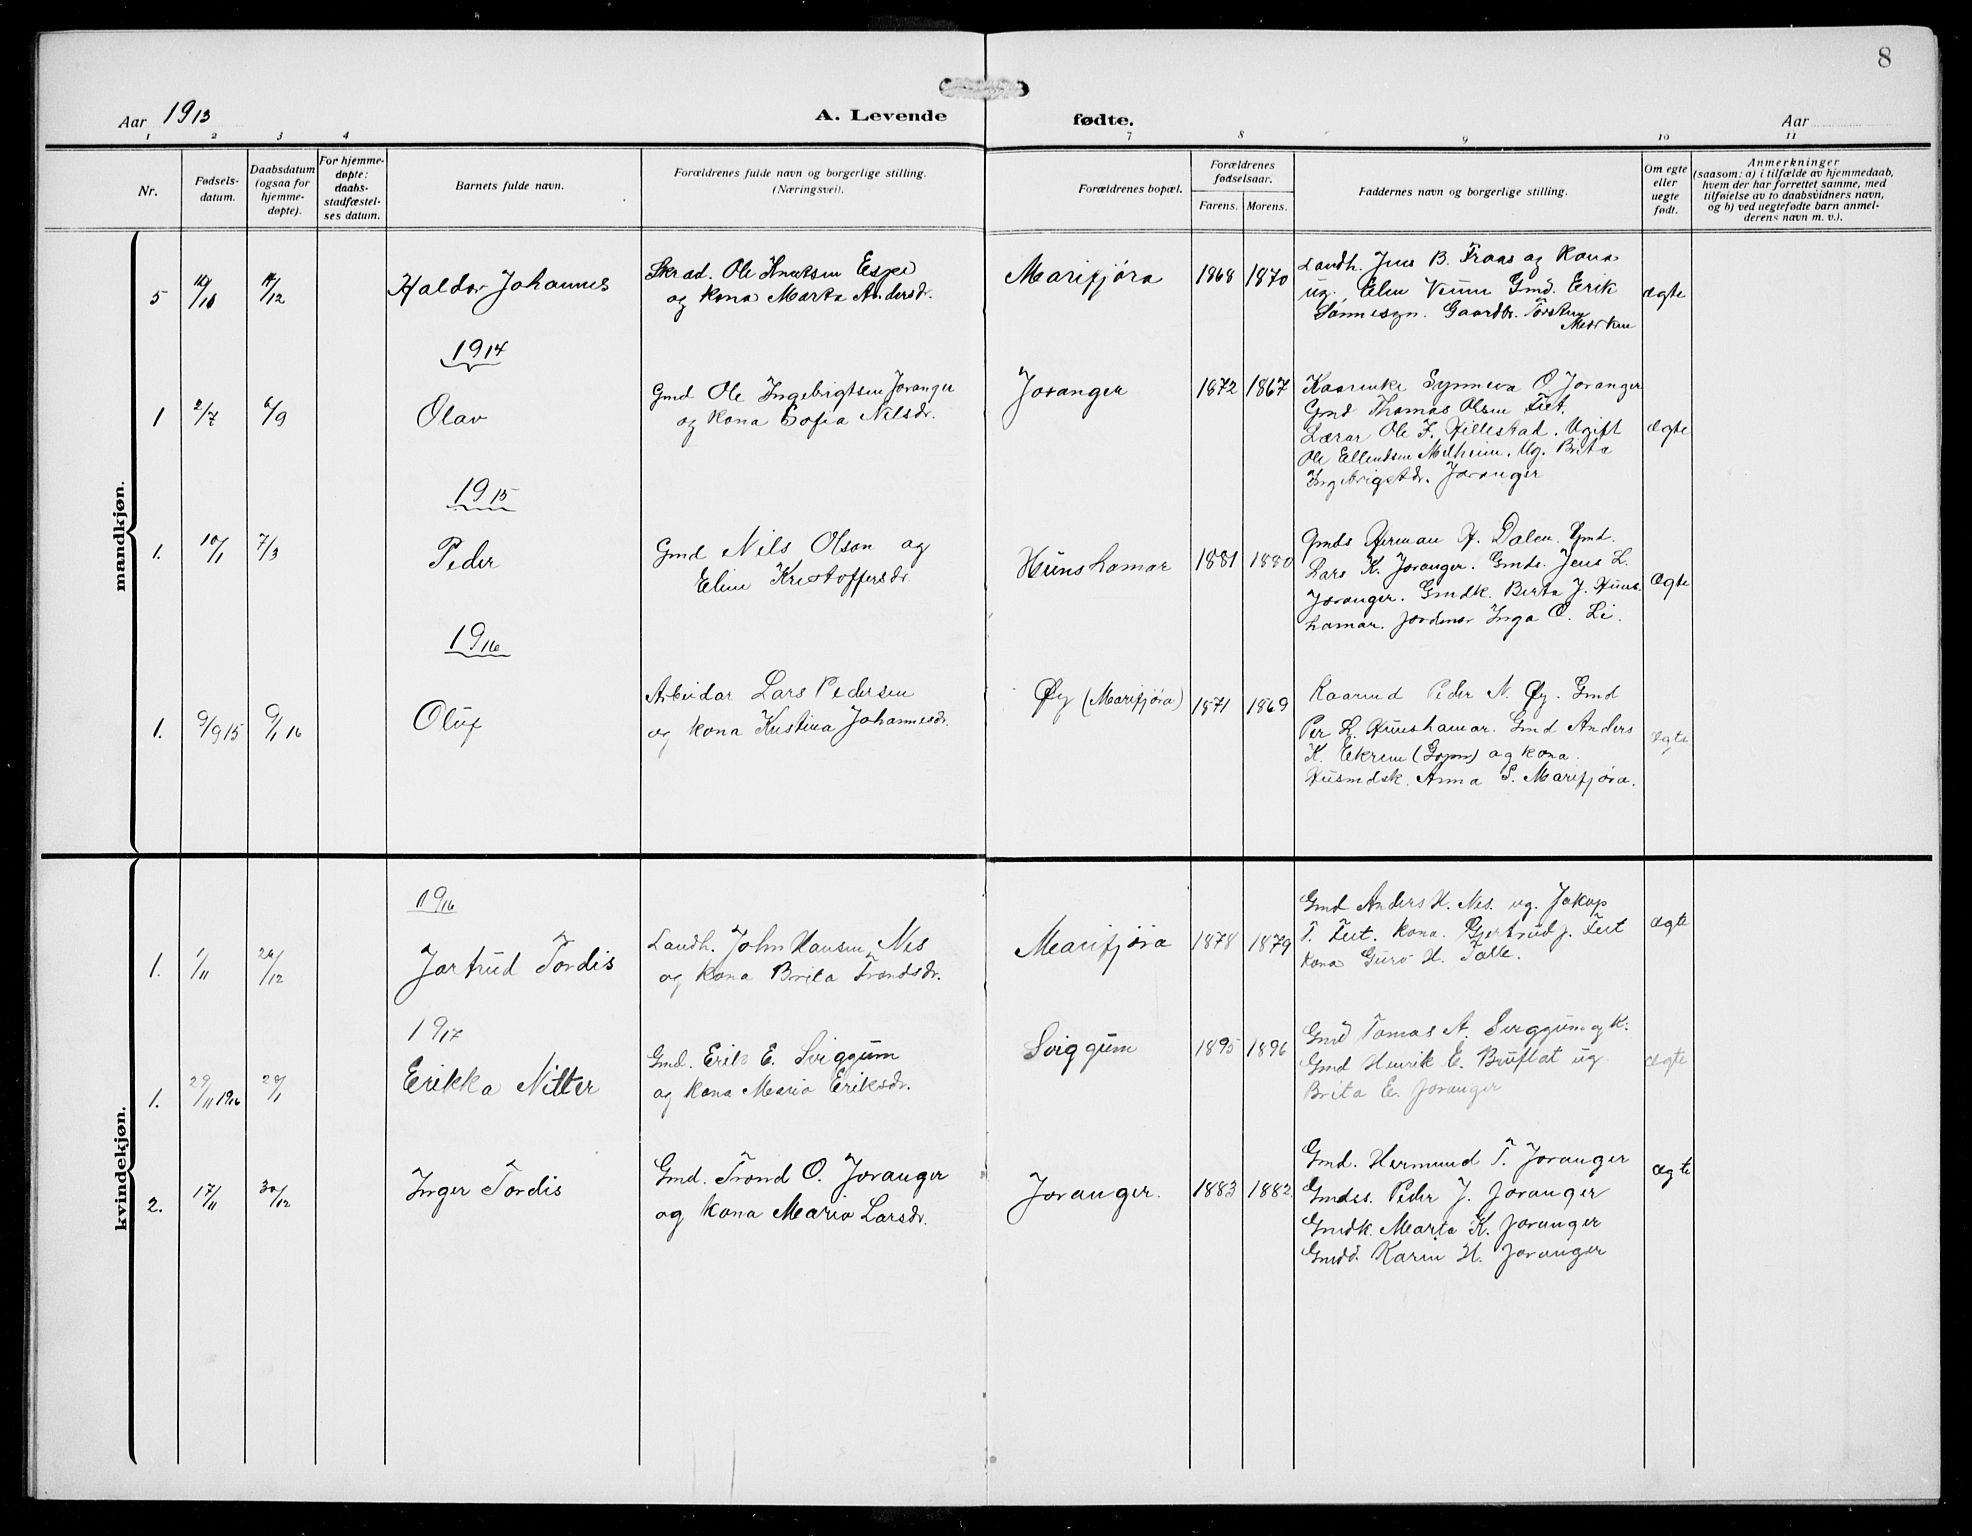 8
Aar 1913 A. Levende fødte. Aar
1 2 3 4 7 8 9 10 11
Nr.
Fødsels-
datum.
Daabsdatum
(ogsaa for
hjemme-
døpte).
For hjemme-
døpte:
daabs-
stadfæstel-
ses datum.
Barnets fulde navn.
Forældrenes fulde navn og borgerlige stilling.
(Næringsvei).
Forældrenes bopæl.
Forældrenes
fødselsaar.
Farens. Morens.
Faddernes navn og borgerlige stilling.
Om egte
eller
uegte
født.
Anmerkninger
(saasom: a) i tilfælde av hjemmedaab,
hvem der har forrettet samme, med
tilføielse av to daabsvidners navn,
og b) ved uegtefødte barn anmel-
derens navn m. v.).
mandkjøn.
5 14/12 Haldor Johannes
Skrad. Ole Knutsen Espe
og kona Marta Andersdr.
Marifjøra 1868 1870
Landh. Jens B. Fraas og Kona
ug. Elen Veum Gmd. Erik
Gaardbr. Torstein
ægte
1914
1 2/7 6/9 Olav
Gmd Ole Ingebrigtsen Joranger
og kona Sofia Nilsdr.
Joranger 1872 1867
Kaarenke Synneva O Joranger
Gmd Thomas Olsen Fet.
Lærar Ole F. Hillestad. Ugift
Ole Ellendsen Melheim. Ug. Brita
Ingebrigtsdr. Joranger
ægte
1915
1. 10/1 7/3 Peder
Gmd Nils Olson og
Eline Kristoffersdr.
Hunshamar 1881 1880
Gmds Herman H. Dalen. Gmd.
Lars K. Joranger. Gmds. Jens L.
Joranger. Gmdk. Berta J. Huns-
hamar. Jordmor Inga O. Li.
Ægte
1916
1. 9/9 15 9/1 16 Oluf
Arbeidar Lars Pedersen
og kona Kristina Johannesdr.
Øy (Marifjøra) 1871 1869
Kaarmd Peder N. Øy. Gmd
Per L. Hunshamar. Gmd Anders
K. Eikrem og kona
Husmdsk. Anna S. Marifjøra.
ægte
kvindekjøn.
1916
1. 1/11 26/12 Jortrud Tordis
Landh. John Hansen Nes
og kona Brita Trondsdr.
Marifjøra 1878 1879
Gmd Anders H. Nes. ug. Jakop
T. Fet. kona. Gjertrud J. Fet
kona Guro H. Talle.
ægte
1917
1. 29/11 1916 28/1 Erikka Nitter
Gmd. Erik E. Sviggum
og kona Maria Eriksdr.
Sviggum 1895 1896
Gmd Tomas A. Sviggum og k.
Gmd Henrik E. Bruflat ug
Brita E. Joranger
ægte
2. 17/11 30/12 Inger Tordis
Gmd. Trond O. Joranger
og kona Maria Larsdr.
Joranger. 1883 1882
Gmd. Hermund T. Joranger
Gmds. Peder J. Joranger
Gmdk. Marta K. Joranger
Gmdd. Karin H. Joranger
ægte